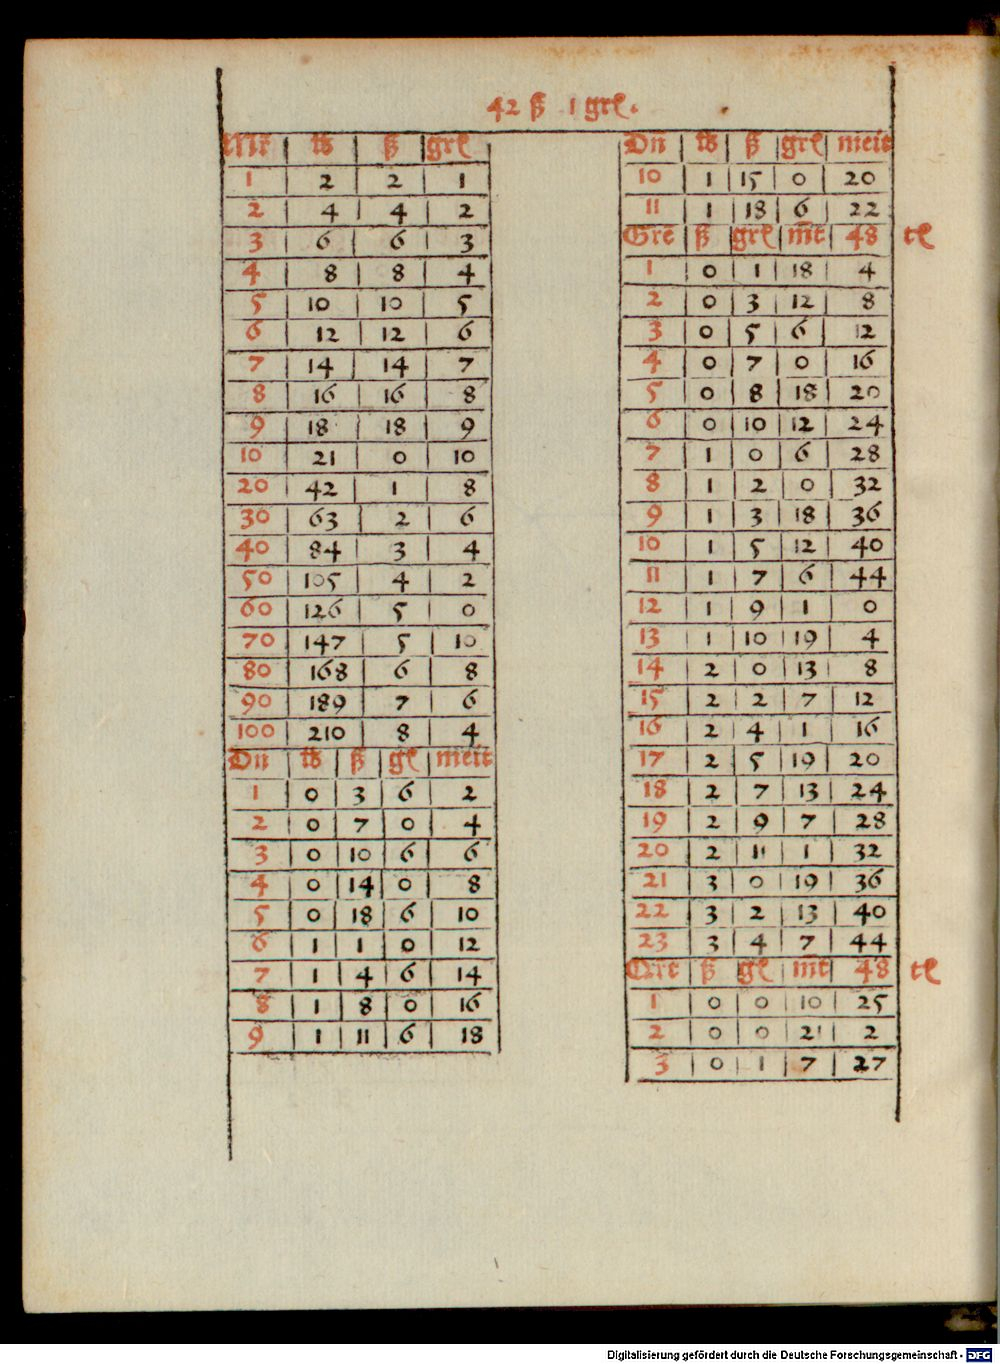 42 ß 1 grl.
Mr lb ß grl
1 2 2 1
2 4 4 2
3 6 6 3
4 8 8 4
5 10 10 5
6 12 12 6
7 14 14 7
8 16 16 8
9 18 18 9
10 21 0 10
20 42 1 8
30 63 2 6
40 84 3 4
50 105 4 2
60 126 5 0
70 147 5 10
80 168 6 8
90 189 7 6
100 210 8 4
Vn lb ß gl meit
1 0 3 6 2
2 0 7 0 4
3 0 10 6 6
4 0 14 0 8
5 0 18 6 10
6 1 1 0 12
7 1 4 6 14
8 1 8 0 16
9 1 11 6 18
Vn lb ß grl meit
10 1 15 0 20
11 1 18 6 22
Gre ß grl m̅t 48 tl
1 0 1 18 4
2 0 3 12 8
3 0 5 6 12
4 0 7 0 16
5 0 8 18 20
6 0 10 12 24
7 1 0 6 28
8 1 2 0 32
9 1 3 18 36
10 1 5 12 40
11 1 7 6 44
12 1 9 1 0
13 1 10 19 4
14 2 0 13 8
15 2 2 7 12
16 2 4 1 16
17 2 5 19 20
18 2 7 13 24
19 2 9 7 28
20 2 11 1 32
21 3 0 19 36
22 3 2 13 40
23 3 4 7 44
ß gl m̅t 48 tl
1 0 0 10 25
2 0 0 21 2
3 0 1 7 27
Digitalisierung gefördert durch die Deutsche Forschungsgemeinschaft - DFG